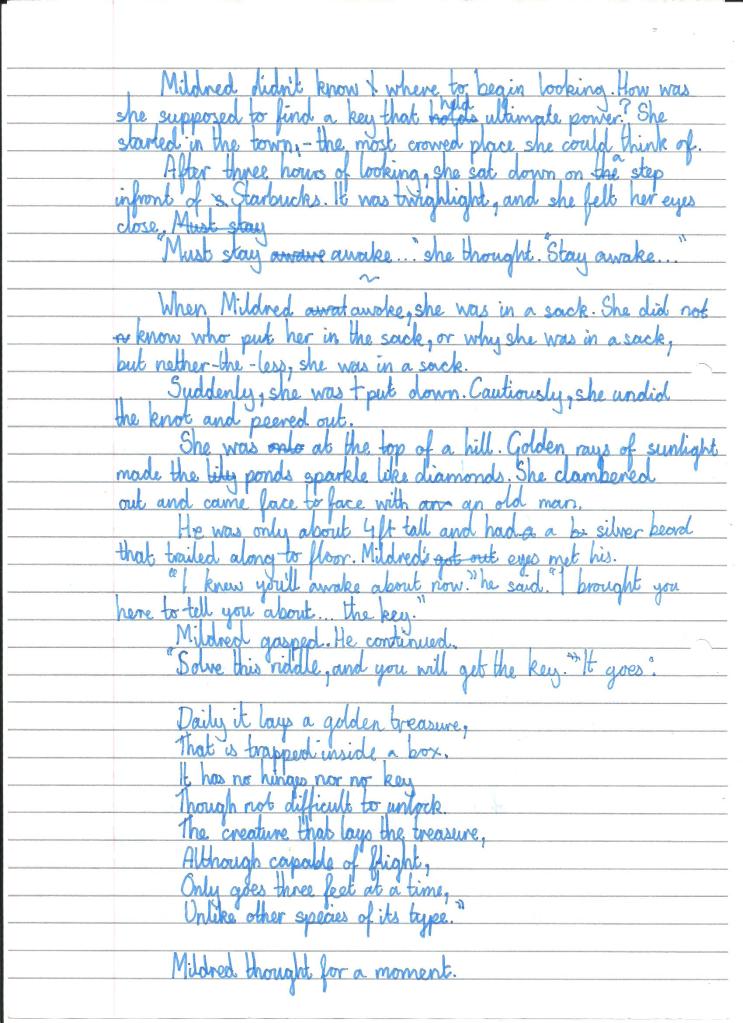 Mildred didn't know where to begin looking. How was
she supposed to find a key that holds held ultimate power? She
started in the town, - the most crowed place she could think of.
After three hours of looking, she sat down on the a step
infront of s Starbucks. It was twighlight, and she felt her eyes
close. Must stay
"Must stay aware awake..." she thought. "Stay awake..."
~
When Mildred awat awoke, she was in a sack. She did not
know who put her in the sack, or why she was in a sack,
but nether-the-less, she was in a sack.
Suddenly, she was t put down. Cautiously, she undid
the knot and peered out.
She was onto at the top of a hill. Golden rays of sunlight
made the lily ponds sparkle like diamonds. She clambered
out and came face to face with an an old man.
He was only about 4ft tall and had a a silver beard
that trailed along to floor. Mildred's got out eyes met his.
"I knew you'll awake about now." he said. "I brought you
here to tell you about... the key."
Mildred gasped. He continued.
"Solve this riddle, and you will get the key." "It goes:
Daily it lays a golden treasure,
That is trapped inside a box.
It has no hinges nor no key
Though not difficult to unlock.
The creature that lays the treasure,
Although capable of flight,
Only goes three feet at a time,
Unlike other species of its type."
Mildred thought for a moment.